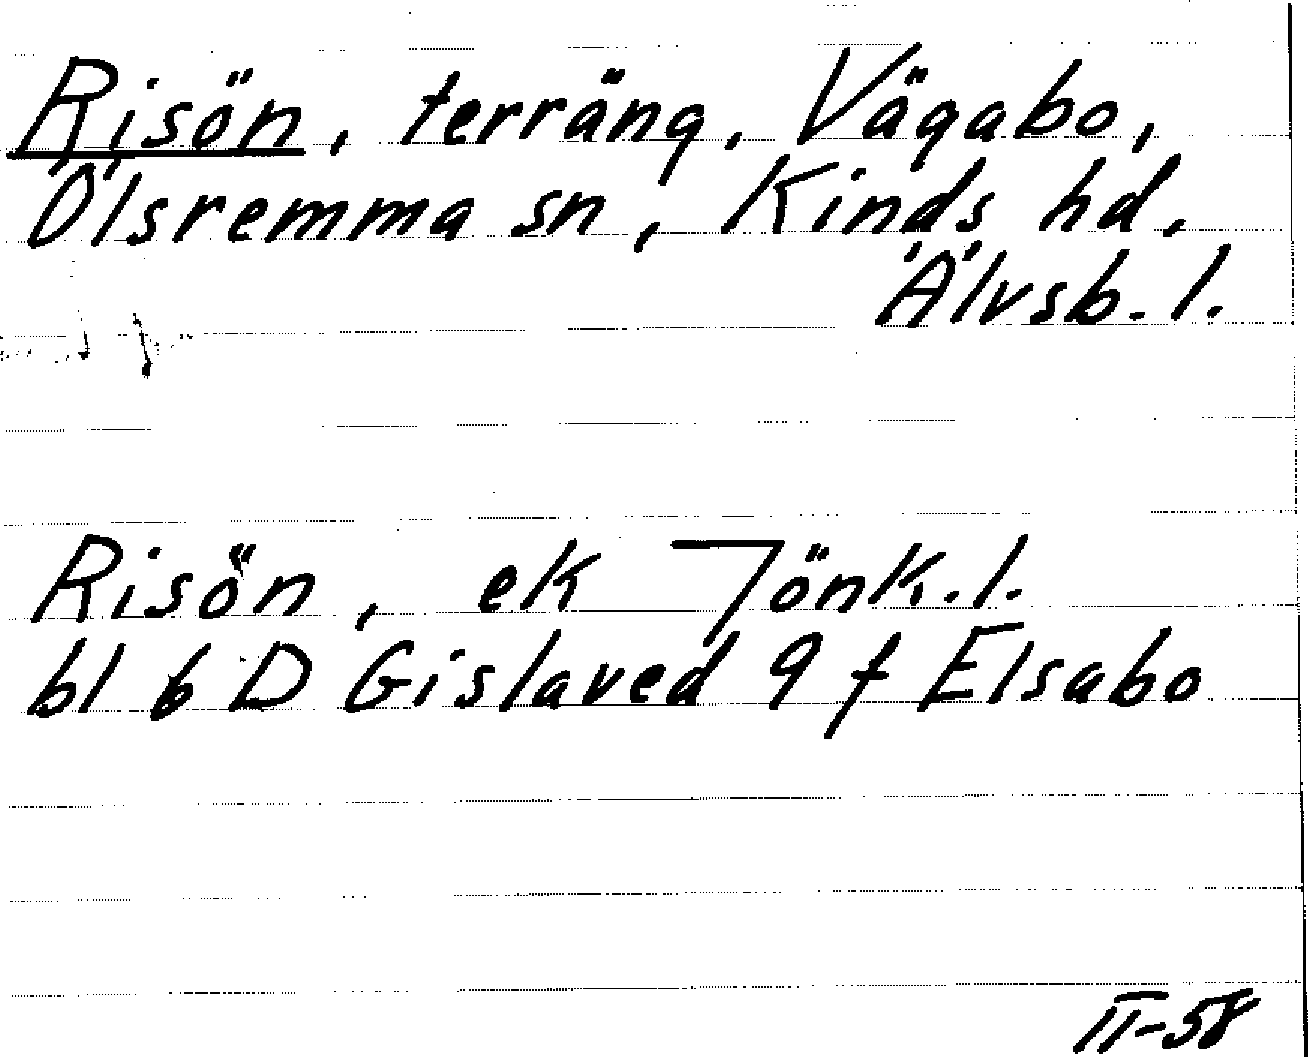 Risön, terräng, Vägabo,
Ölsremma sn, Kinds hd,
Älvsb. l.
Risön, ek Jönk. l.
bl 6 D Gislaved 9 f Elsabo
II-58